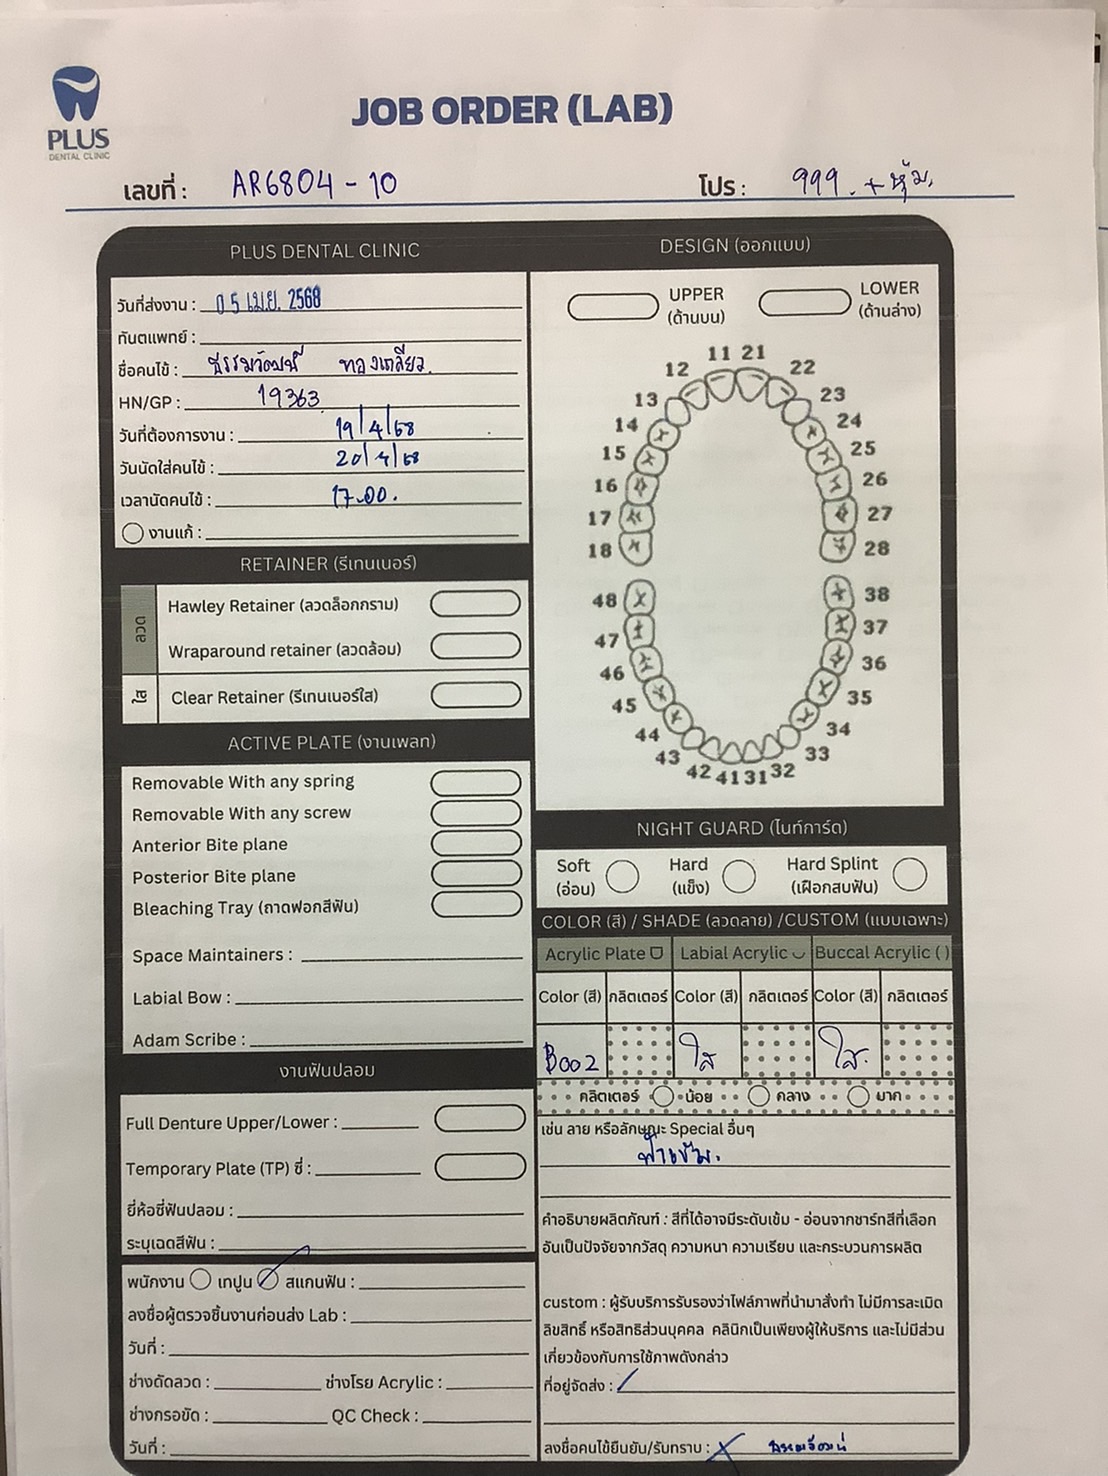 PLUS
DENTAL CLINIC
JOB ORDER (LAB)
เลขที่ : AR6804-10
โปร : 999.+หุ้ม.
PLUS DENTAL CLINIC
วันที่ส่งงาน : 05 เม.ย. 2568
ทันตแพทย์ :
ชื่อคนไข้ : ธรรมวัฒน์ ทองเกลียว
HN/GP : 19363
วันที่ต้องการงาน : 19/4/68
วันนัดใส่คนไข้ : 20/4/68
เวลานัดคนไข้ : 17.00.
งานแก้ :
RETAINER (รีเทนเนอร์)
ลวด
Hawley Retainer (ลวดล็อกกราม)
Wraparound retainer (ลวดล้อม)
ใส
Clear Retainer (รีเทนเนอร์ใส)
ACTIVE PLATE (งานเพลท)
Removable With any spring
Removable With any screw
Anterior Bite plane
Posterior Bite plane
Bleaching Tray (ถาดฟอกสีฟัน)
Space Maintainers :
Labial Bow :
Adam Scribe :
งานฟันปลอม
Full Denture Upper/Lower :
Temporary Plate (TP) ซี่ :
ยี่ห้อซี่ฟันปลอม :
ระบุเฉดสีฟัน :
พนักงาน เทปูน สแกนฟัน :
ลงชื่อผู้ตรวจชิ้นงานก่อนส่ง Lab :
วันที่ :
ช่างดัดลวด : ช่างโรย Acrylic :
ช่างกรอขัด : QC Check :
วันที่ :
DESIGN (ออกแบบ)
UPPER
(ด้านบน)
LOWER
(ด้านล่าง)
11 21
12 22
13 23
14 24
15 25
16 26
17 27
18 28
48 38
47 37
46 36
45 35
44 34
43 33
42 41 31 32
NIGHT GUARD (ไนท์การ์ด)
Soft
(อ่อน)
Hard
(แข็ง)
Hard Splint
(เฝือกสบฟัน)
COLOR (สี) / SHADE (ลวดลาย) /CUSTOM (แบบเฉพาะ)
Acrylic Plate Labial Acrylic Buccal Acrylic ( )
Color (สี) กลิตเตอร์ Color (สี) กลิตเตอร์ Color (สี) กลิตเตอร์
B002 ใส ใส.
กลิตเตอร์ น้อย กลาง มาก
เช่น ลาย หรือลักษณะ Special อื่นๆ
ฟ้าเข้ม.
คำอธิบายผลิตภัณฑ์ : สีที่ได้อาจมีระดับเข้ม - อ่อนจากชาร์ทสีที่เลือก
อันเป็นปัจจัยจากวัสดุ ความหนา ความเรียบ และกระบวนการผลิต
custom : ผู้รับบริการรับรองว่าไฟล์ภาพที่นำมาสั่งทำ ไม่มีการละเมิด
ลิขสิทธิ์ หรือสิทธิส่วนบุคคล คลินิกเป็นเพียงผู้ให้บริการ และไม่มีส่วน
เกี่ยวข้องกับการใช้ภาพดังกล่าว
ที่อยู่จัดส่ง :
ลงชื่อคนไข้ยืนยัน/รับทราบ : ธรรมวัฒน์